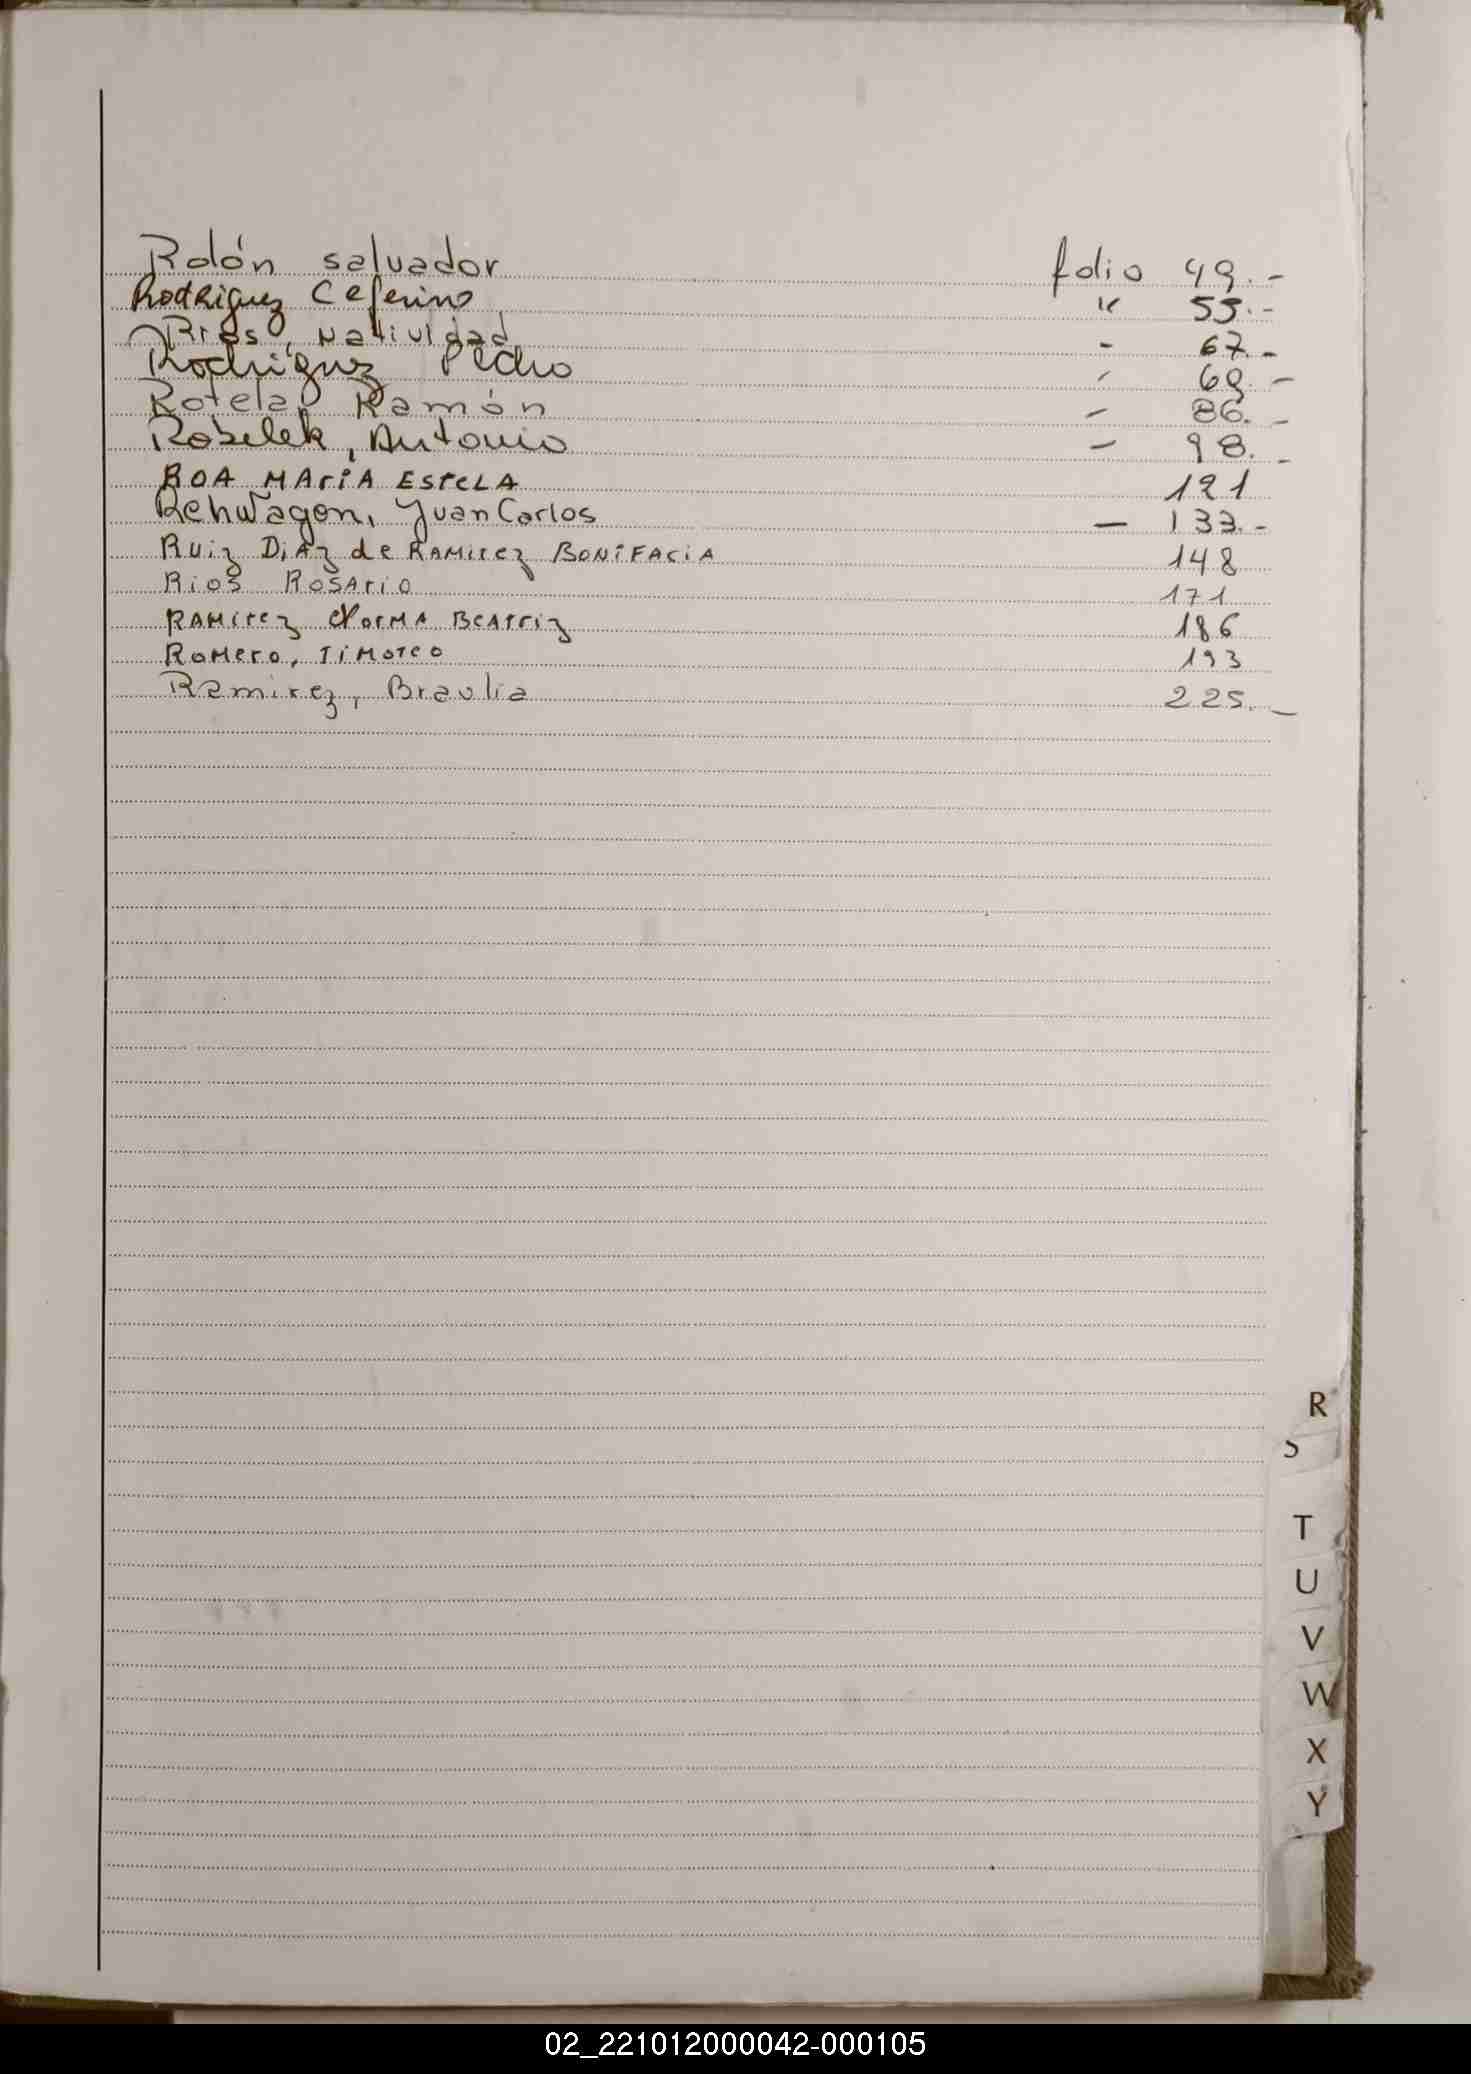 Rolón Salvador folio 49.-
Rodriguez Ceferino " 55.-
Rios, Natividad - 67.-
Rodriguez Pedro - 69.-
Rotela, Ramón - 86.-
Robelek, Antonio - 98.-
ROA MARIA ESTELA 121
Rehwagen, Juan Carlos - 133.-
Ruiz Diaz de RAMIREZ BONIFACIA 148
Rios ROSARIO 171
RAMIREZ NORMA BEATRIZ 186
ROMERO, TIMOTEO 193
Ramirez, Braulia 225.-
R
S
T
U
V
W
X
Y
02_221012000042-000105